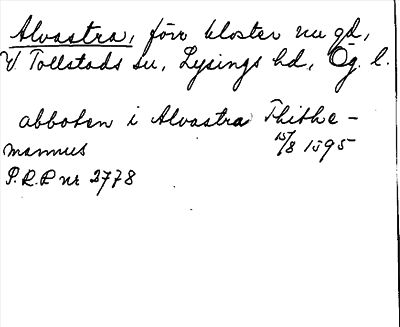 Alvastra, förr kloster nu gd,
V Tollstads sn, Lysings hd, Ög. l.
abboten i Alvastra Thithe-
mannus 15/8 1595
P.R.P nr 2778